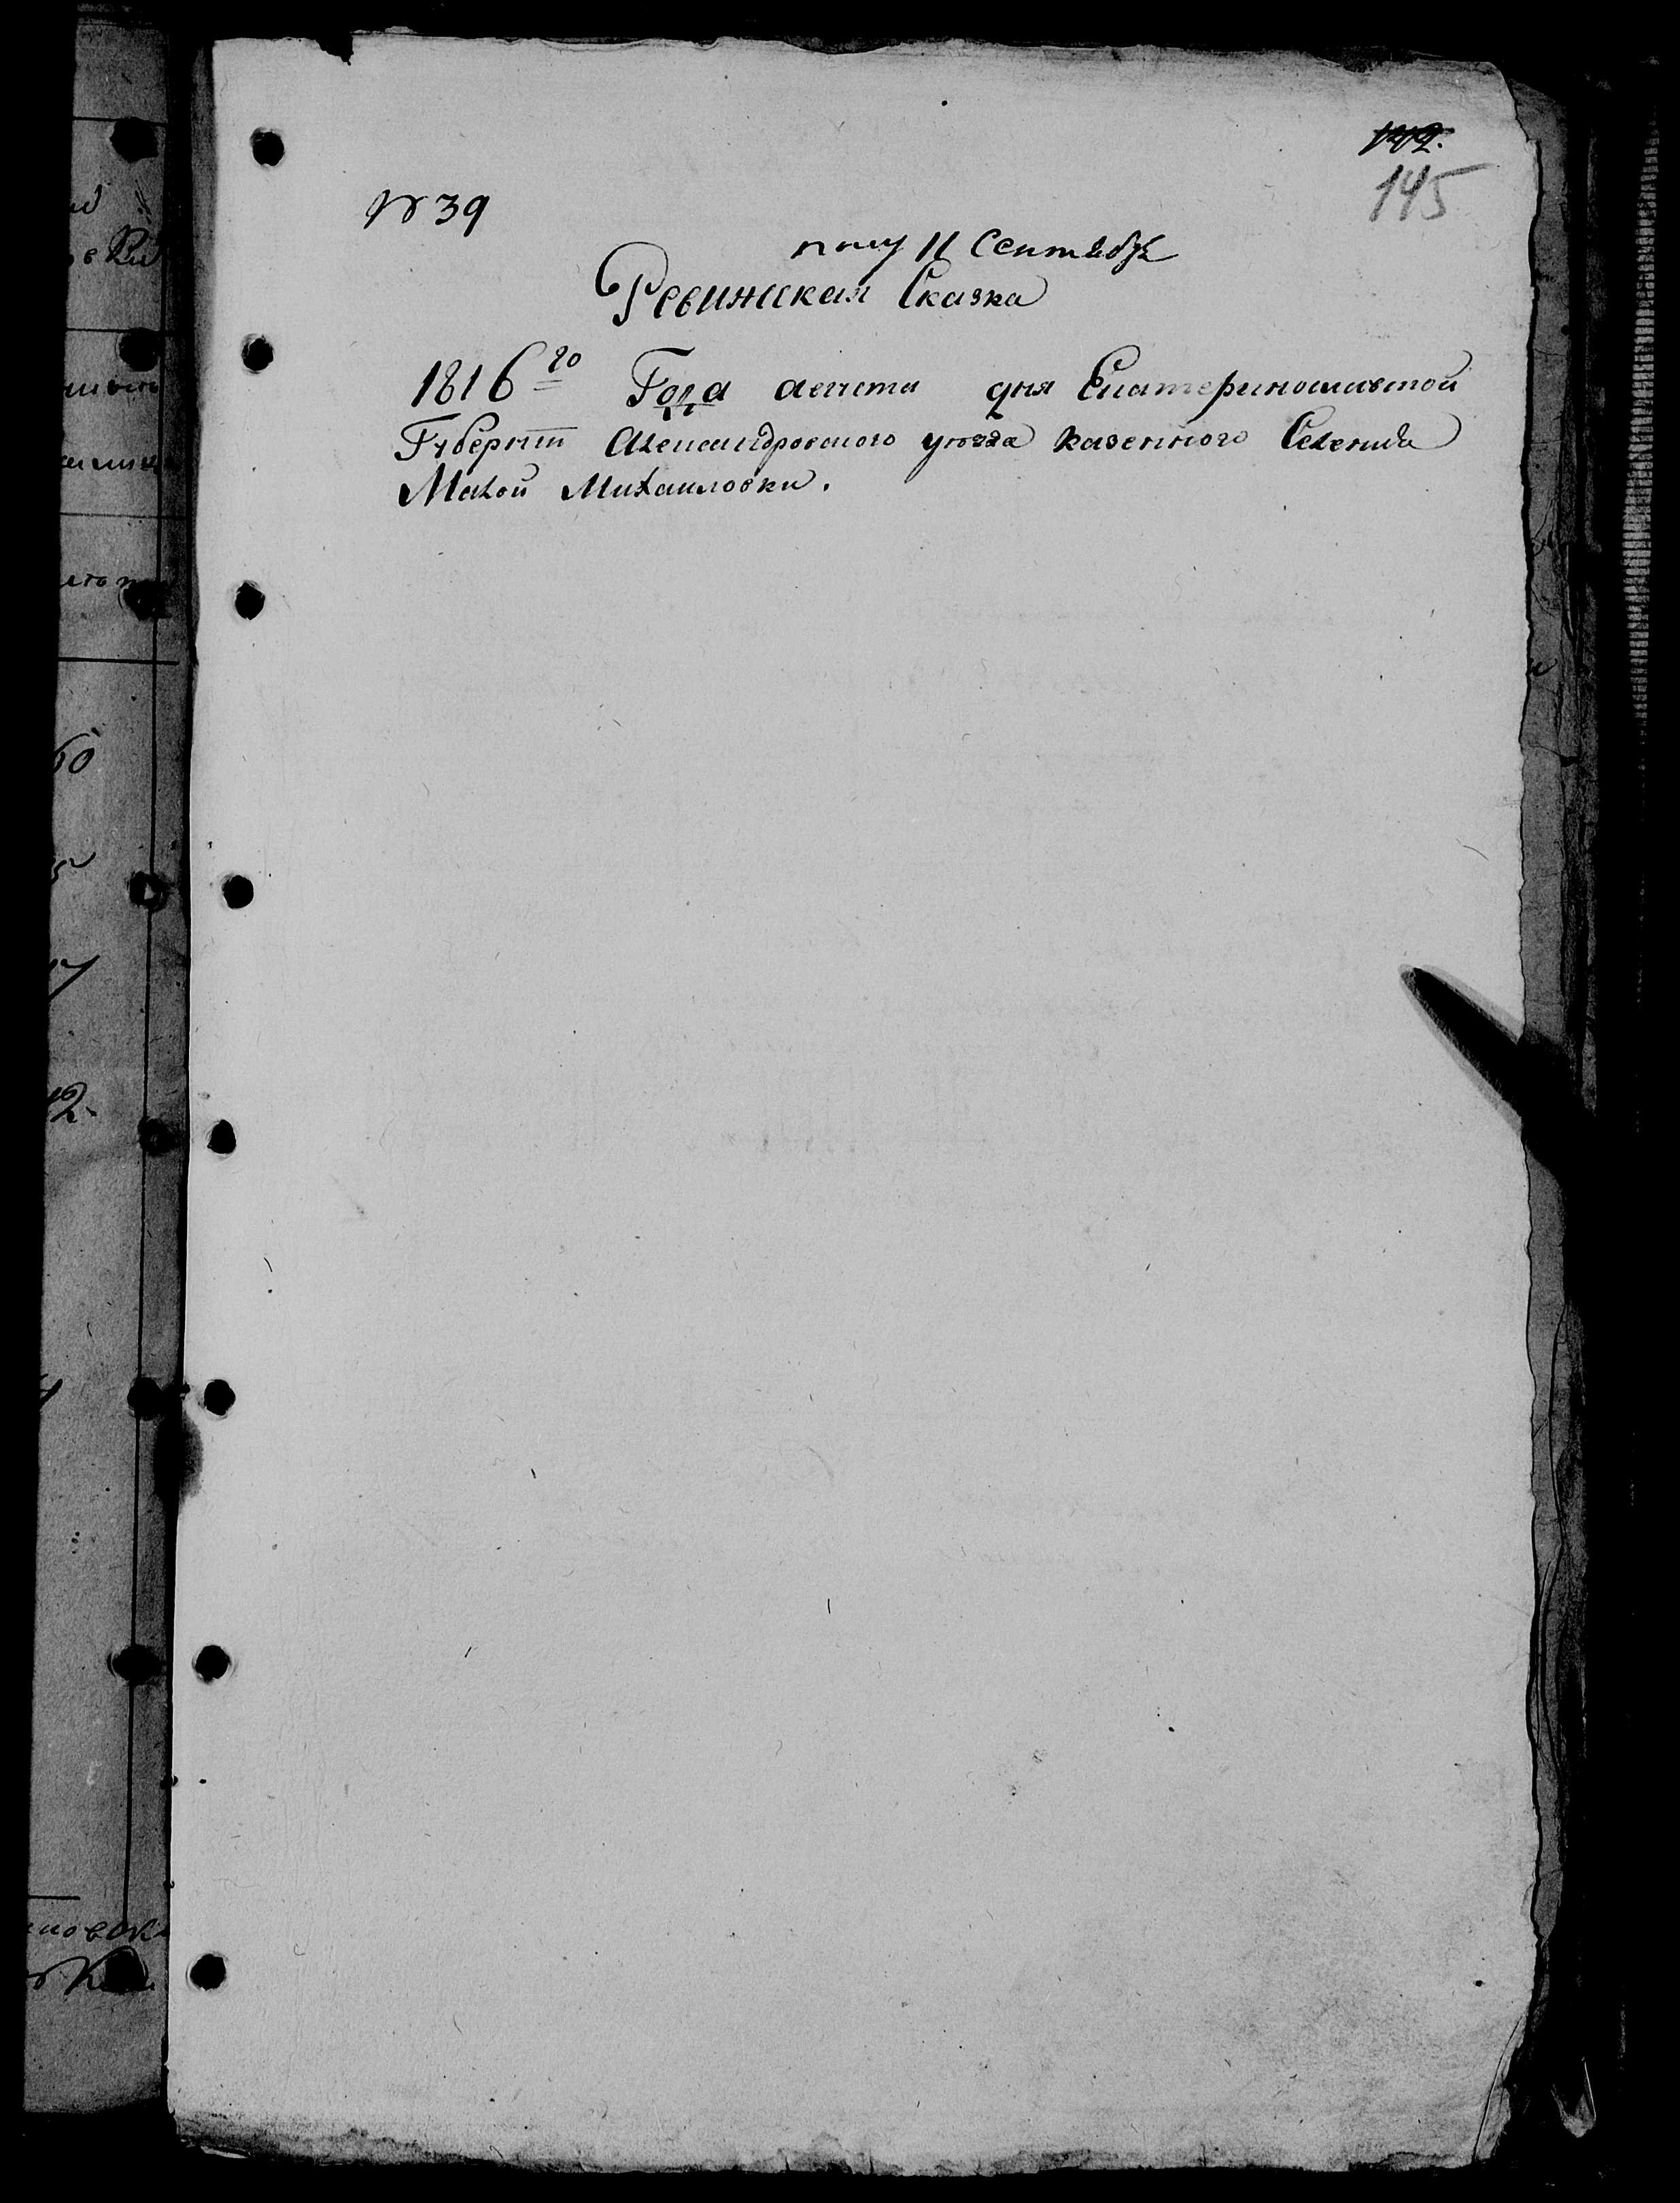 142.
145
№ 39
полу 11 Сентебря
Ревижская Сказка
1816го Года августа дня Екатеринославской
Губернии Александровского уезда казенного Селения
Малой Михаиловки.